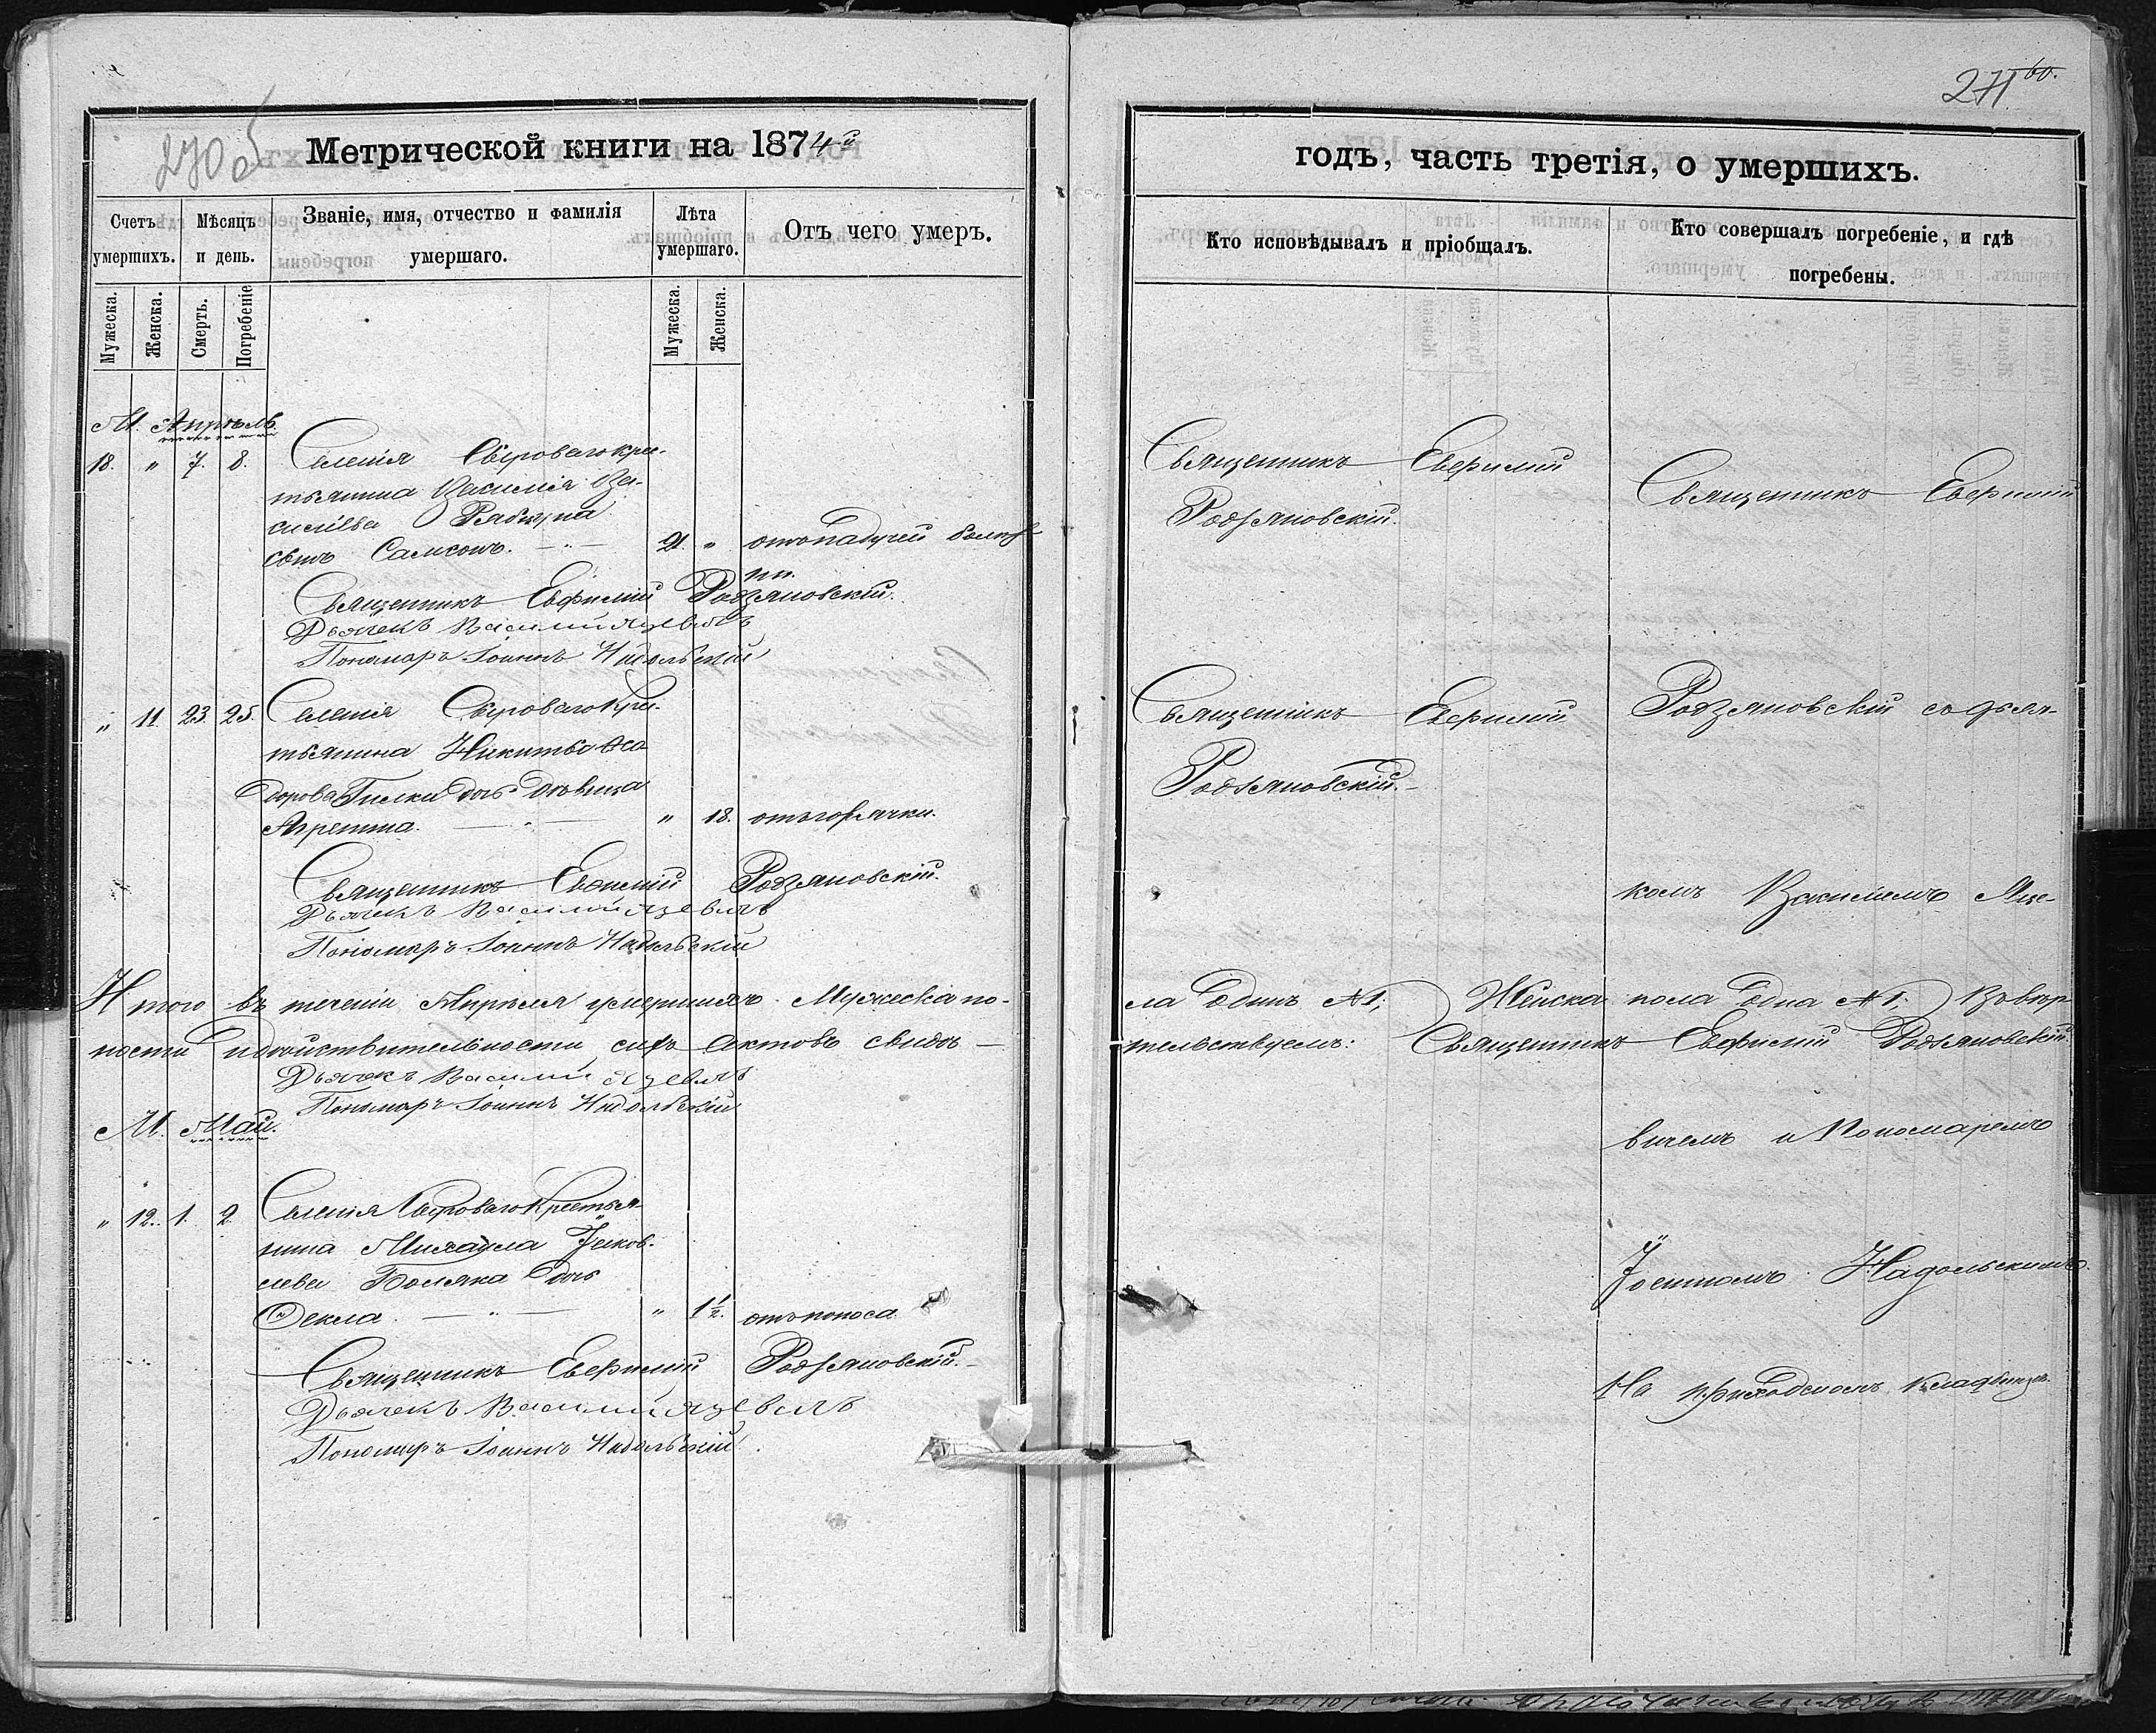 270 об
Метрической книги на 1874й
Счетъ умершихъ.
Мѣсяцъ и день.
Званіе, имя, отчество и фамилія умершаго.
Лѣта умершаго.
Отъ чего умеръ.
Мужеска.
Женска.
Смерть.
Погребеніе
Мужеска.
Женска.
М. Апрѣль.
18. " 7. 8. Селенія Сыроваго крес-
тьянина Василія Ва-
сильева
сынъ Самсонъ. 21. " отъ падучей
Священникъ Евфимій Родзяновскій.
Дьячекъ Василий Яцевичъ
Пономаръ Іоаннъ Надольскій
" 11. 23. 25. Селенія Сыроваго Крес-
тьянина Никиты
дочь Дѣвица
" 18. отъ горячки.
Священникъ Евфимій Родзяновскій.
Дьячекъ Василий Яцевичъ
Пономаръ Іоаннъ Надольскій
Итого въ теченіи Апрѣля умершихъ. Мужеска по-
ности и дѣйствительности сихъ актовъ свидѣ-
Дьячекъ Василий Яцевичъ
Пономаръ Іоаннъ Надольскій
М. Май.
" 12. 1. 2. Селенія Сыроваго Крестья-
нина Михаила Яков-
лева дочь
Ѳекла. " 1 1/2. отъ поноса
Священникъ Евфимій Родзяновскій.
Дьячекъ Василий Яцевичъ
Пономаръ Іоаннъ Надольскій
271 60.
годъ, часть третія, о умершихъ.
Кто исповѣдывалъ и пріобщалъ.
Кто совершалъ погребеніе, и гдѣ погребены.
Священникъ Евфимій
Родзяновскій.
Священникъ Евфимій
Священникъ Евфимій
Родзяновскій.
Родзяновскій съ дьяч-
комъ Василіемъ Яце-
ла Одинъ №1; Женска пола Одна №1; Въ вѣр-
тельствуемъ: Священникъ Евфимій Родзяновскій.
вичемъ и Пономаремъ
Іоанномъ Надольскимъ.
На приходскомъ кладбищѣ.